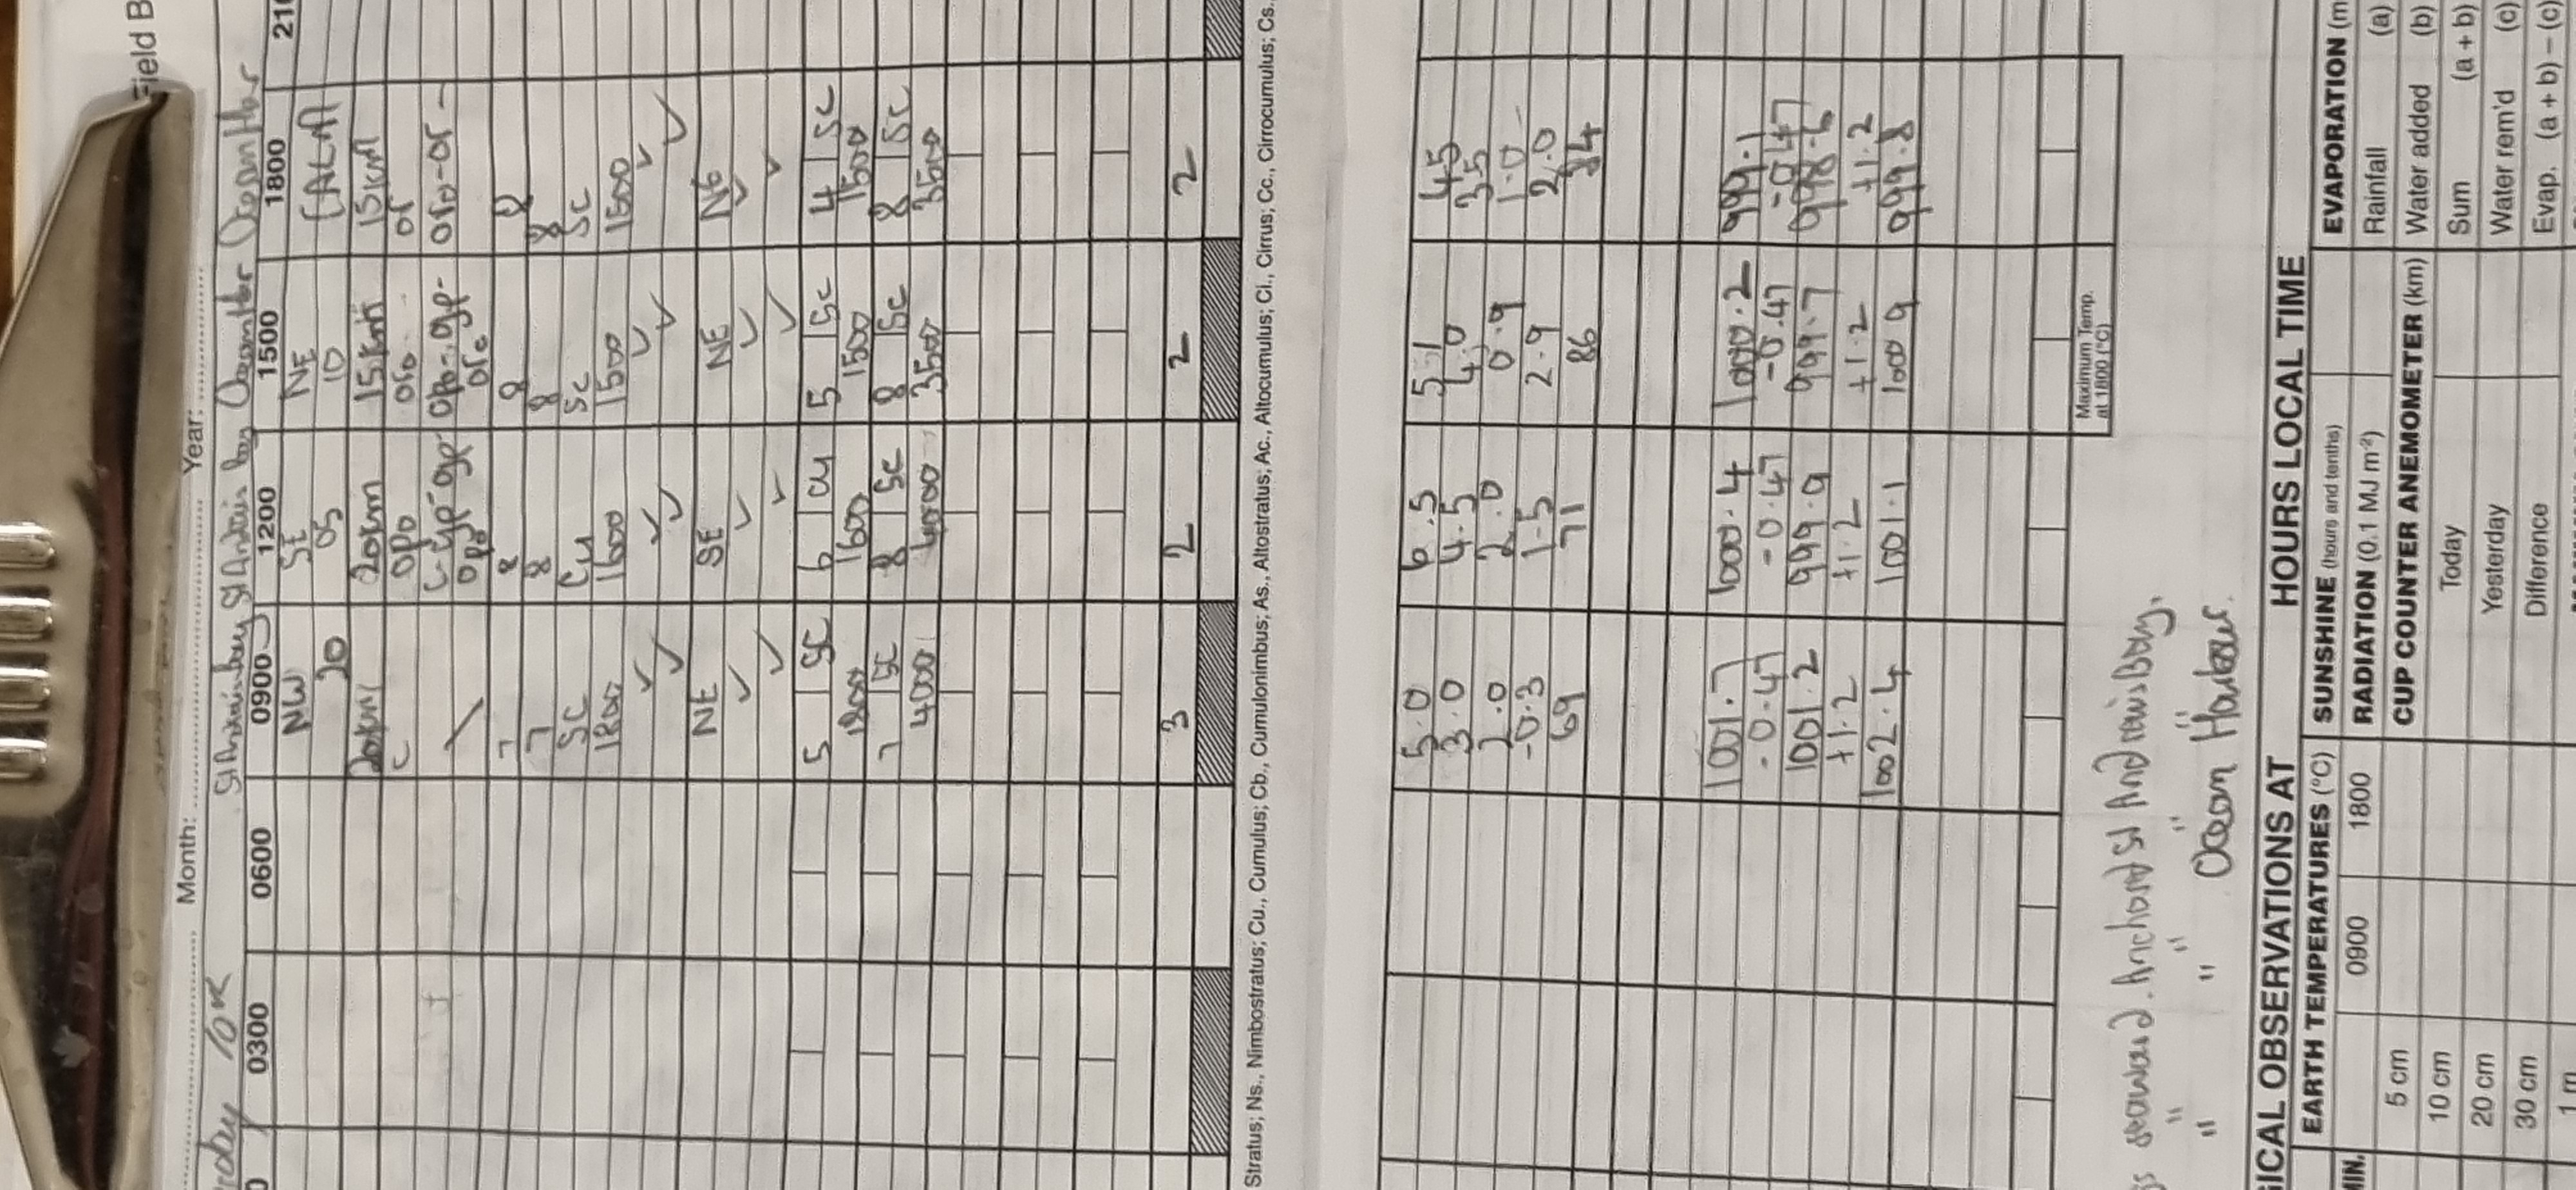 Field B
Month: Year:
St Andrews bay St Andrews bay Ocean Hbr Ocean Hbr
0300 0600 0900 1200 1500 1800 210
NW SE NE CALM
20 05 10
20km 20km 15km 15km
c opo oro or
7 8 8 8
7 8 8 8
SC Cu Sc Sc
1800 1600 1500 1500
✓ ✓ ✓ ✓
✓ ✓ ✓ ✓
NE SE NE NE
✓ ✓ ✓ ✓
✓ ✓ ✓ ✓
5 SC 6 Cu 5 Sc 4 Sc
1800 1600 1500 1500
7 SC 8 Sc 8 Sc 8 Sc
4000 4000 3500 3500
3 2 2 2
Stratus; Ns., Nimbostratus; Cu., Cumulus; Cb., Cumulonimbus; As., Altostratus; Ac., Altocumulus; Ci., Cirrus; Cc., Cirrocumulus; Cs.
5.0 6.5 5.1 4.5
3.0 4.5 4.0 3.5
2.0 2.0 0.9 1.0
-0.3 1.5 2.9 2.0
69 71 86 84
1001.7 1000.4 1000.2 999.1
-0.47 -0.47 -0.47 -0.47
1001.2 999.9 999.7 998.6
+1.2 +1.2 +1.2 +1.2
1002.4 1001.1 1000.9 999.8
Maximum Temp.
at 1800 (°C)
seaward. Anchored St Andrews Bay.
" " "
" " " Ocean Harbour.
GICAL OBSERVATIONS AT HOURS LOCAL TIME
MIN. EARTH TEMPERATURES (°C) SUNSHINE (hours and tenths) EVAPORATION (m
0900 1800 RADIATION (0.1 MJ m-2) Rainfall (a)
5 cm CUP COUNTER ANEMOMETER (km) Water added (b)
10 cm Today Sum (a + b)
20 cm Yesterday Water rem'd (c)
30 cm Difference Evap. (a + b) – (c)
1 m